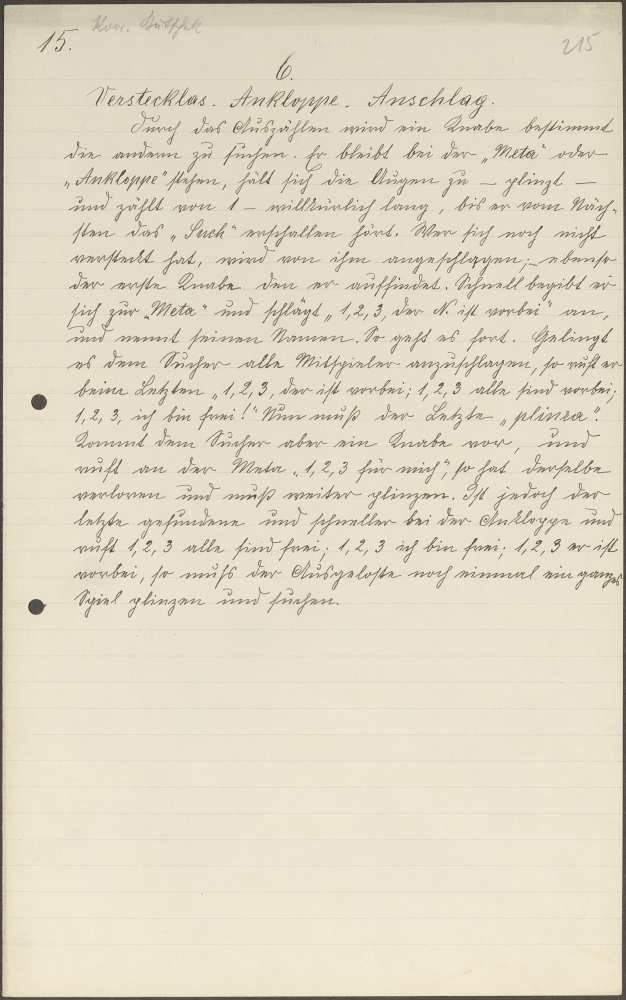 15.
215
6.
Verstecklas. Ankloppe. Anschlag.
Durch das Auszählen wird ein Knabe bestimmt
die andern zu suchen. Er bleibt bei der „Meta“ oder
„Ankloppe“ stehen, hält sich die Augen zu – plinzt –
und zählt von 1 – willkürlich lang, bis er vom Näch-
sten das „Such“ erschallen hört. Wer sich noch nicht
versteckt hat, wird von ihm angeschlagen; ebenso
der erste Knabe den er auffindet. Schnell begibt er
sich zur „Meta“ und schlägt „1, 2, 3, der N. ist vorbei“ an,
und nennt seinen Namen. So geht es fort. Gelingt
es dem Sucher alle Mitspieler anzuschlagen, so ruft er
beim Letzten „1, 2, 3, der ist vorbei; 1, 2, 3 alle sind vorbei;
1, 2, 3, ich bin frei!“ Nun muß der Letzte „plinza“.
Kommt dem Sucher aber ein Knabe vor, und
ruft an der Meta „1, 2, 3 für mich“, so hat derselbe
verloren und muß weiter plinzen. Ist jedoch der
letzte gefundene und schneller bei der Ankloppe und
ruft 1, 2, 3 alle sind frei; 1, 2, 3 ich bin frei; 1, 2, 3 er ist
vorbei, so muß der Ausgeloste noch einmal ein ganzes
Spiel plinzen und suchen.